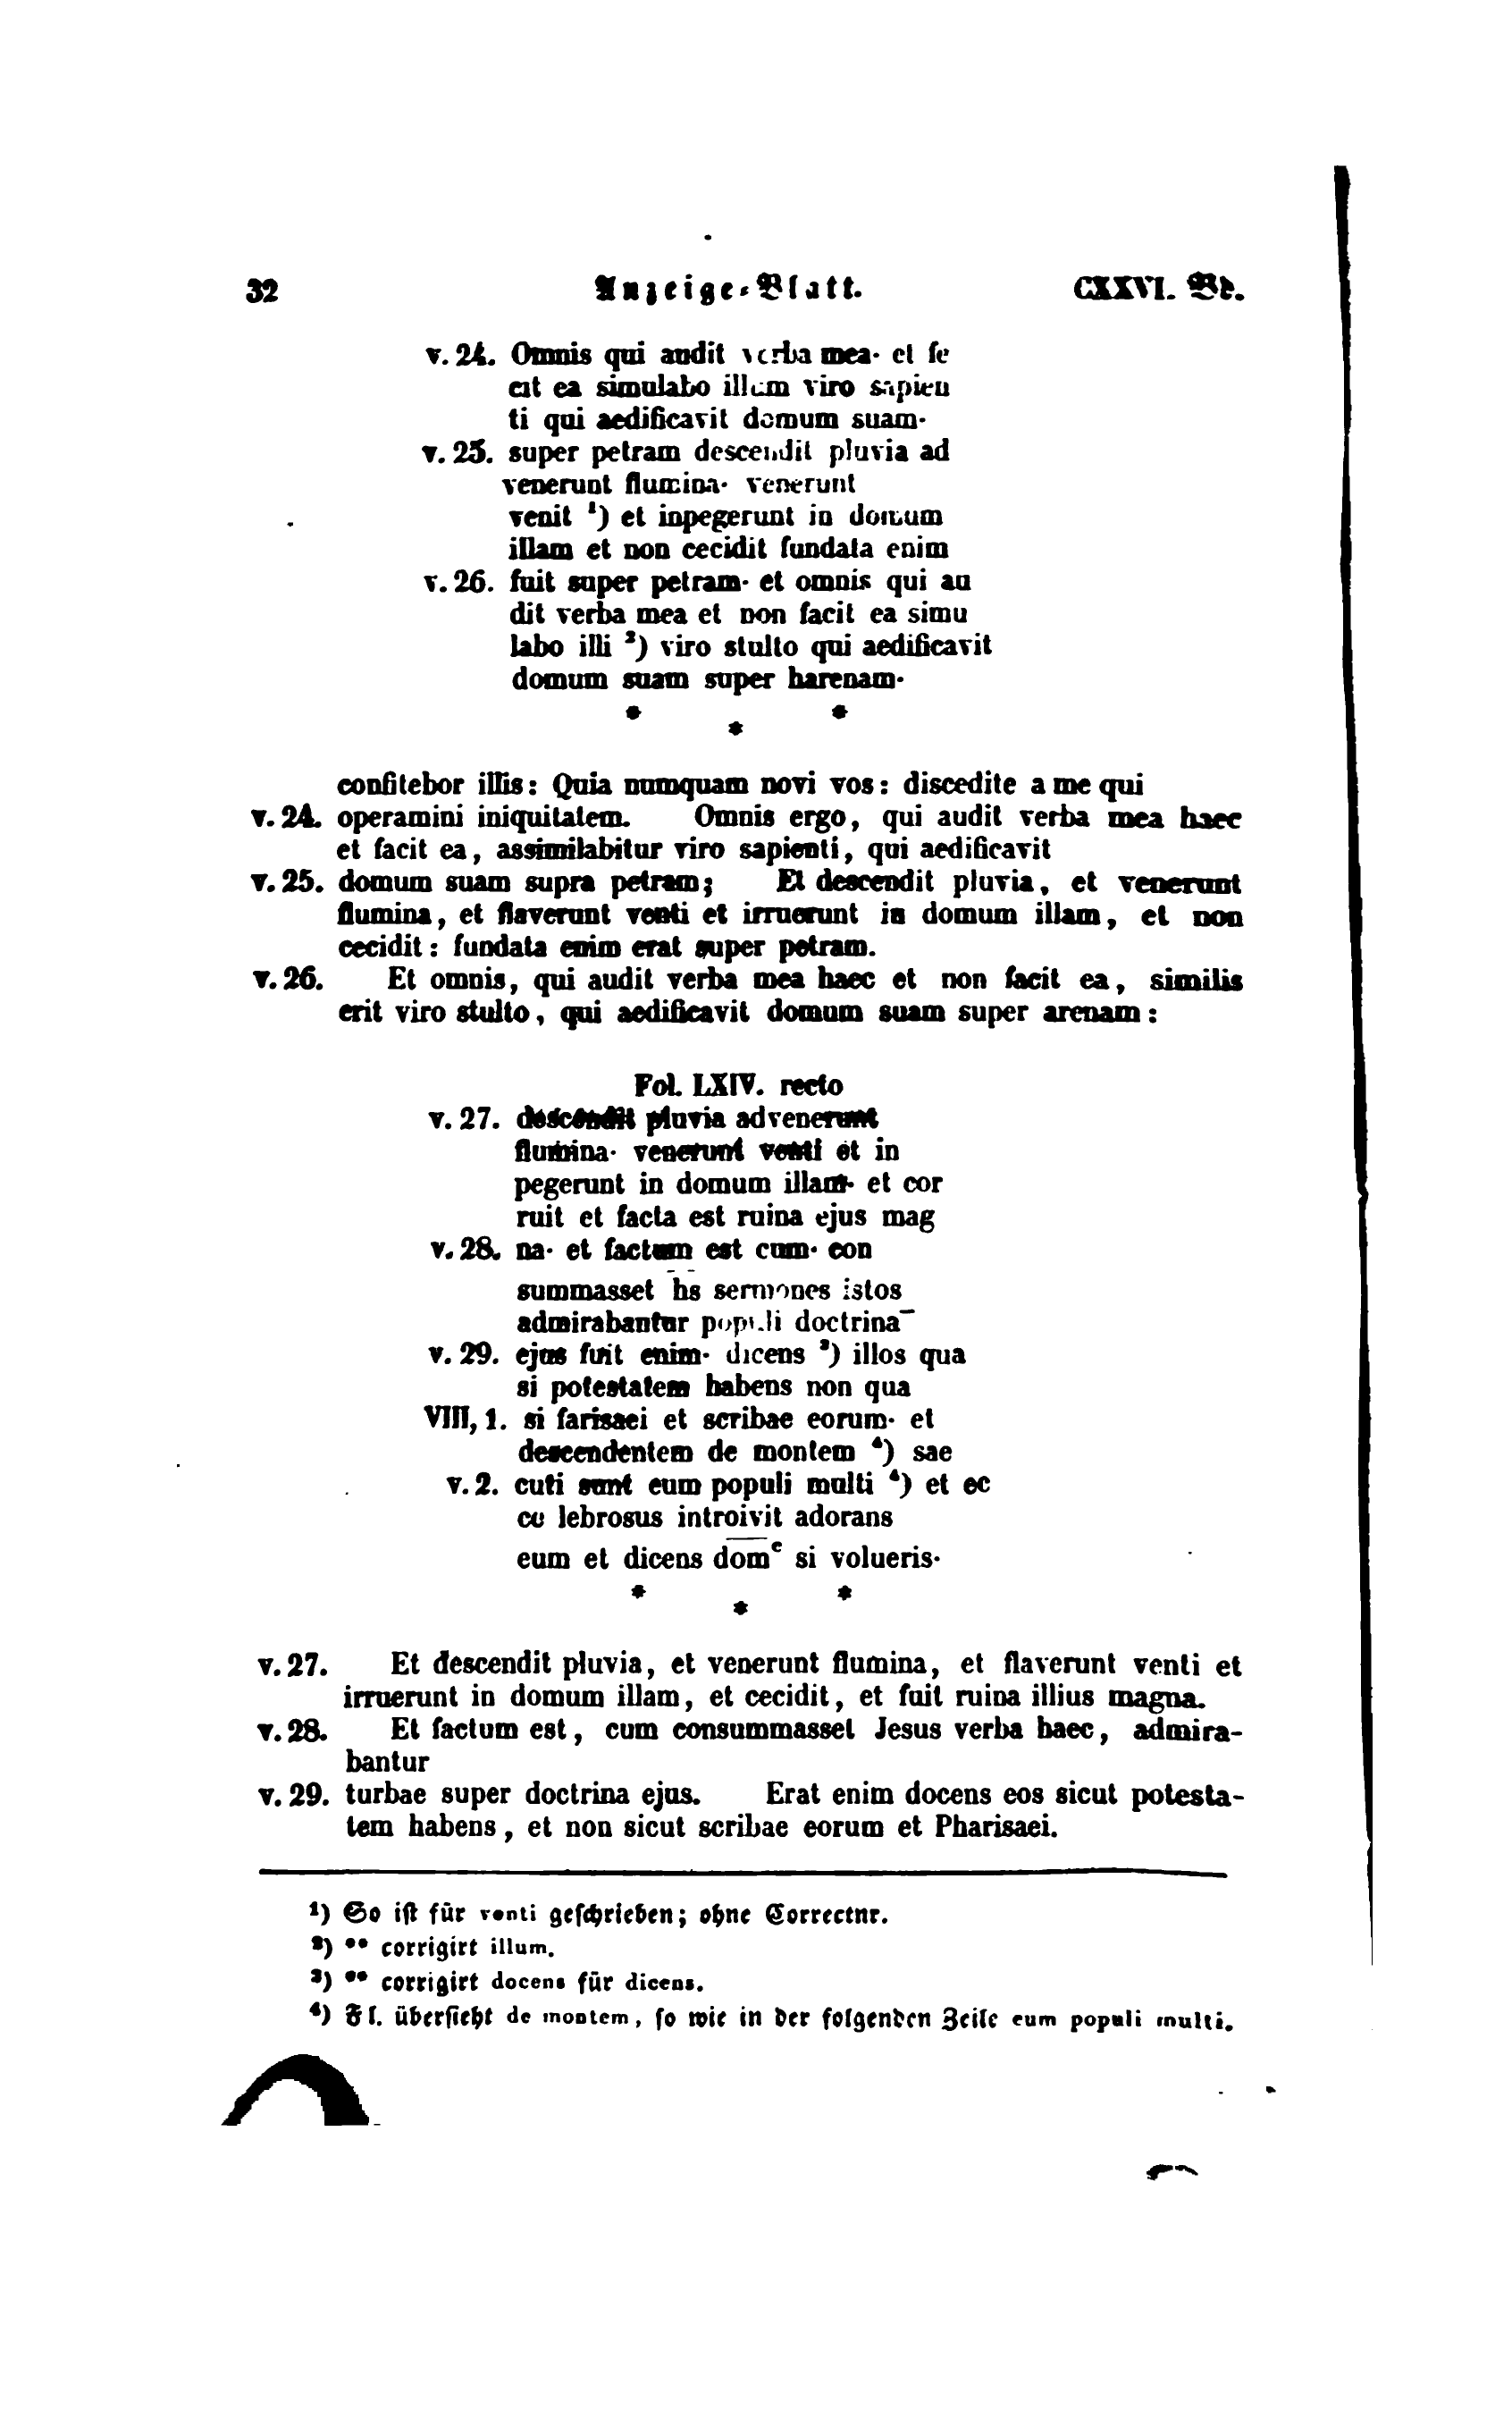 32 Anzeige-Blatt. CXXVI. Bd.
v. 24. Omnis qui audit verba mea· et fe
cit ea simulabo illum viro sapien
ti qui aedificavit domum suam·
v. 25. super petram descendit pluvia ad
venerunt flumina· venerunt
venit ¹) et inpegerunt in domum
illam et non cecidit fundata enim
v. 26. fuit super petram· et omnis qui au
dit verba mea et non facit ea simu
labo illi ²) viro stulto qui aedificavit
domum suam super harenam·
* * *
confitebor illis: Quia numquam novi vos: discedite a me qui
v. 24. operamini iniquitatem. Omnis ergo, qui audit verba mea haec
et facit ea, assimilabitur viro sapienti, qui aedificavit
v. 25. domum suam supra petram; Et descendit pluvia, et venerunt
flumina, et flaverunt venti et irruerunt in domum illam, et non
cecidit: fundata enim erat super petram.
v. 26. Et omnis, qui audit verba mea haec et non facit ea, similis
erit viro stulto, qui aedificavit domum suam super arenam:
Fol. LXIV. recto
v. 27. descendit pluvia advenerunt
flumina· venerunt venti et in
pegerunt in domum illam· et cor
ruit et facta est ruina ejus mag
v. 28. na· et factum est cum· con
summasset h̅s̅ sermones istos
admirabantur populi doctrina¯
v. 29. ejus fuit enim· dicens ³) illos qua
si potestatem habens non qua
VIII, 1. si farisaei et scribae eorum· et
descendentem de montem ⁴) sae
v. 2. cuti sunt eum populi multi ⁴) et ec
ce lebrosus introivit adorans
eum et dicens d̅o̅m̅ᵉ si volueris·
* * *
v. 27. Et descendit pluvia, et venerunt flumina, et flaverunt venti et
irruerunt in domum illam, et cecidit, et fuit ruina illius magna.
v. 28. Et factum est, cum consummasset Jesus verba haec, admira-
bantur
v. 29. turbae super doctrina ejus. Erat enim docens eos sicut potesta-
tem habens, et non sicut scribae eorum et Pharisaei.
¹) So ist für venti geschrieben; ohne Correctnr.
²) ** corrigirt illum.
³) ** corrigirt docens für dicens.
⁴) Fl. übersieht de montem, so wie in der folgenden Zeile eum populi multi.